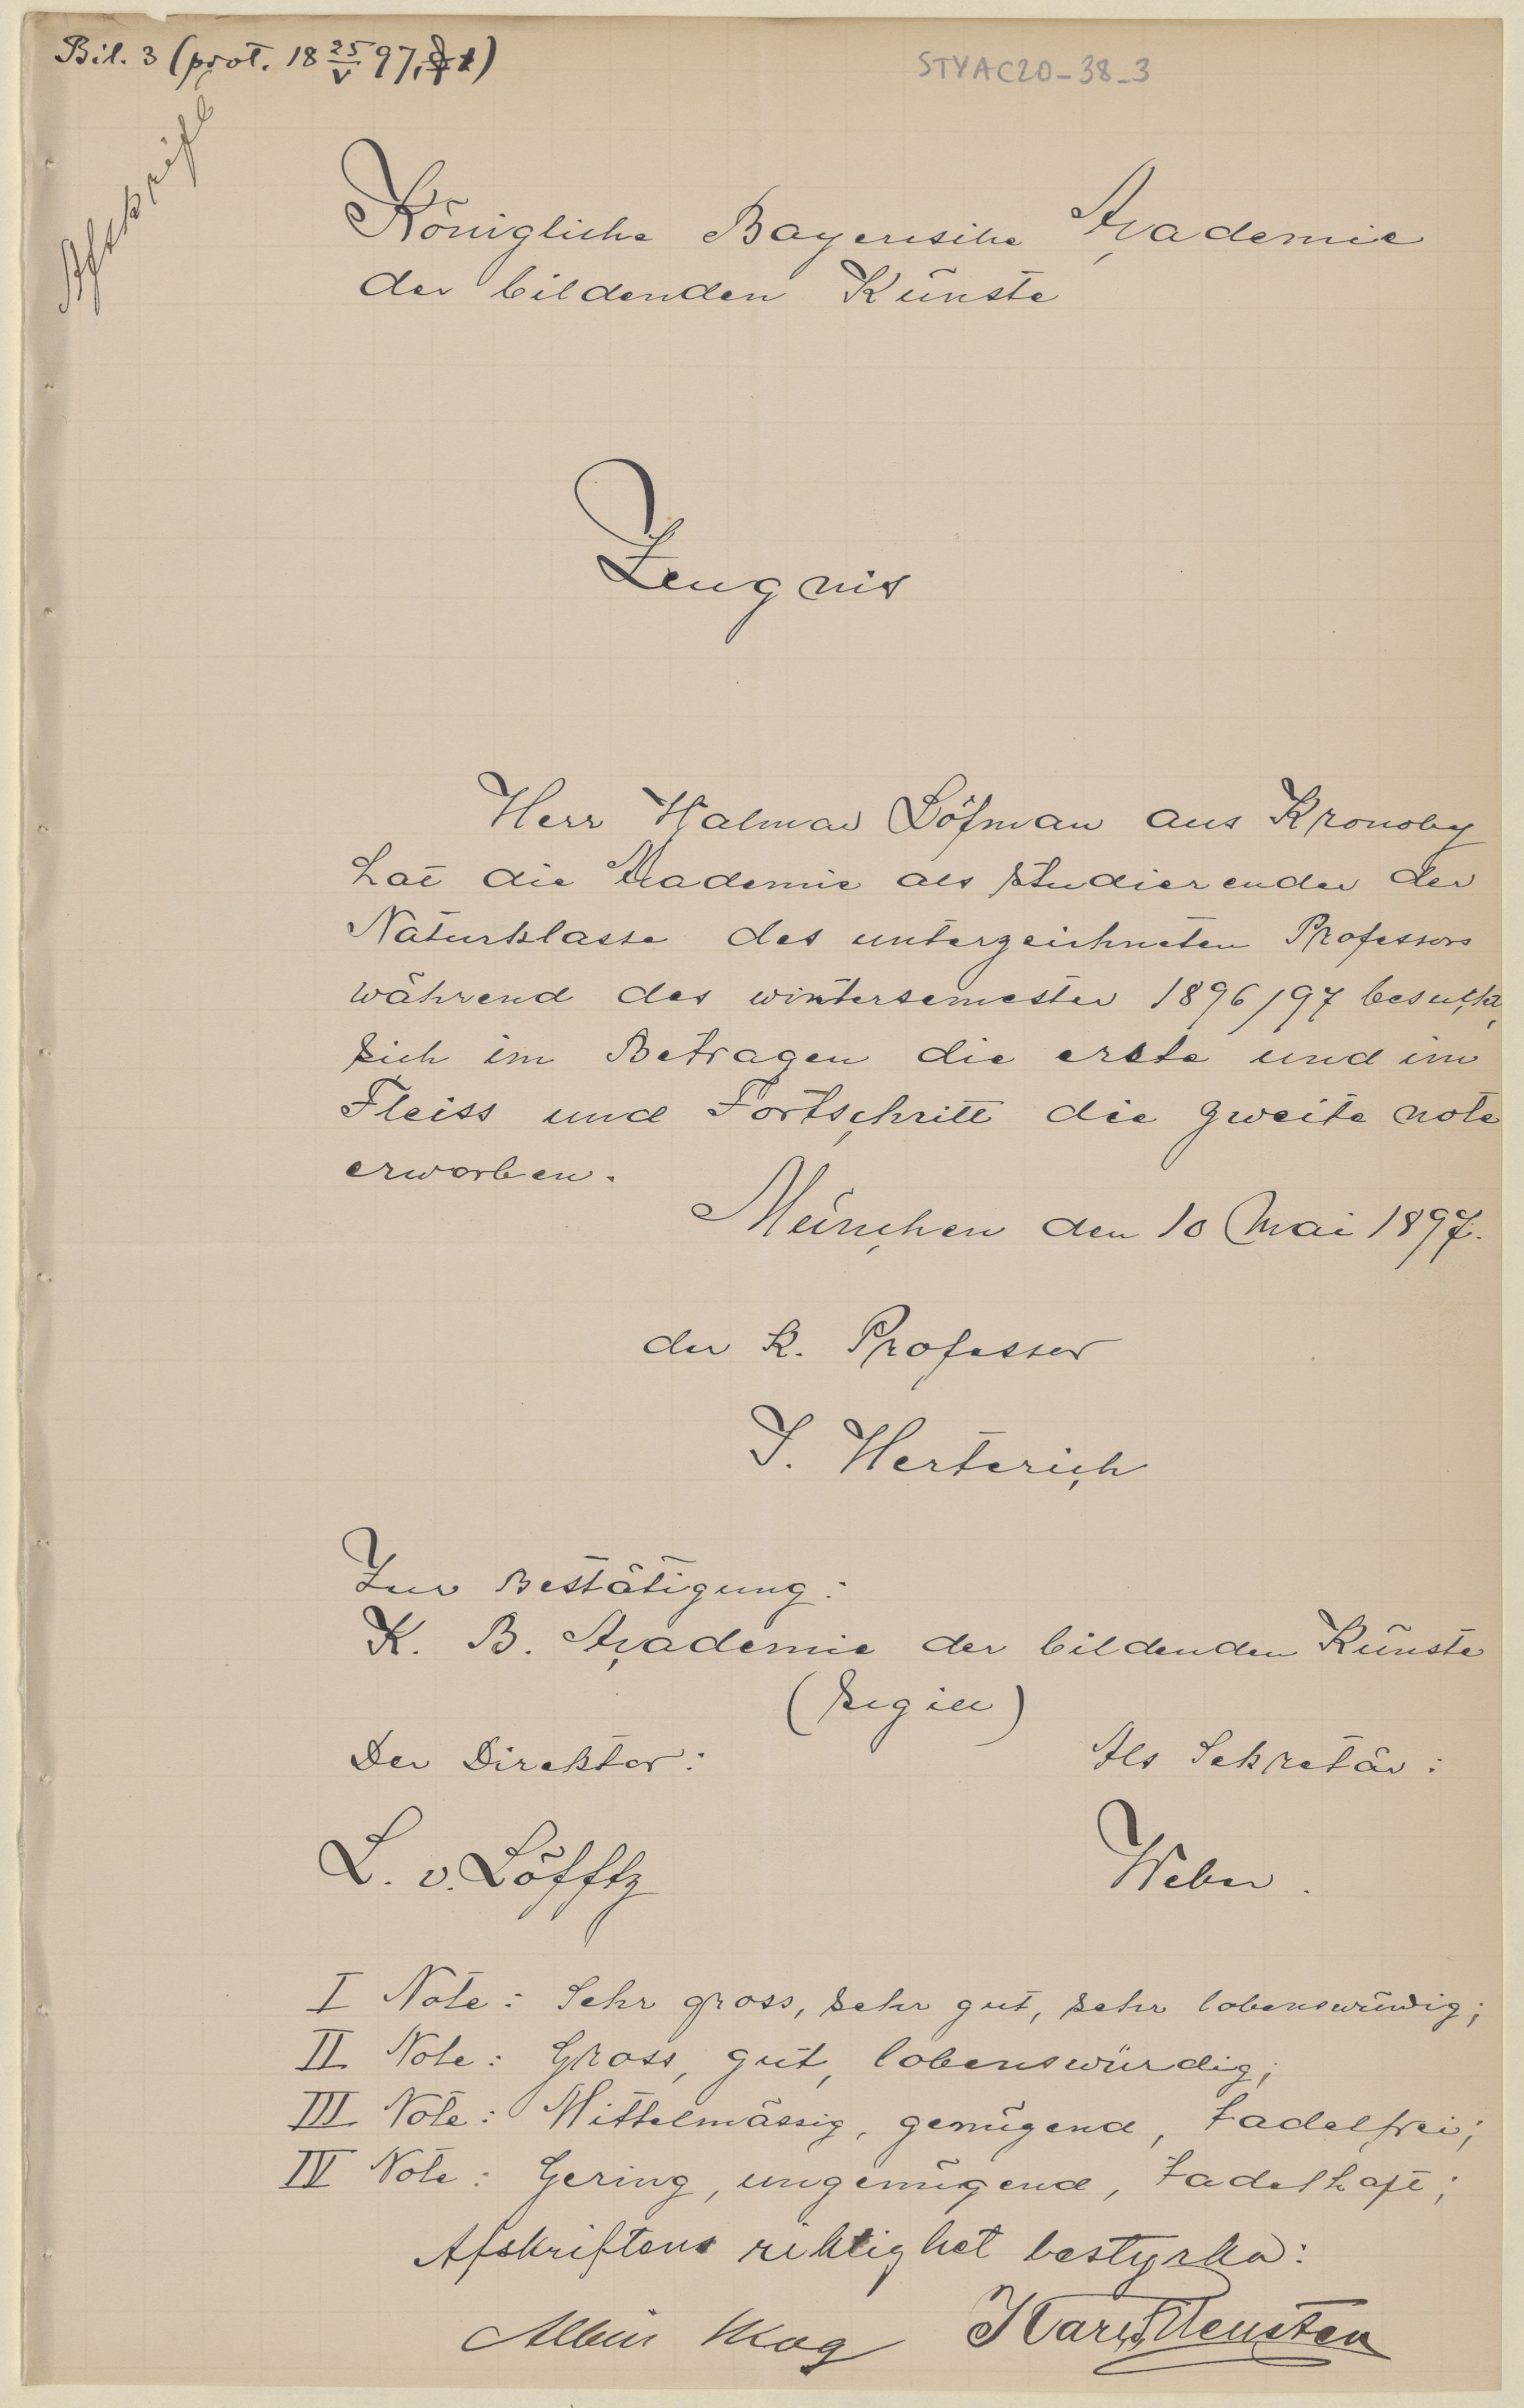 Bil. 3 (prot. 18 25/V 97,
STYAC20-38-3
Afskrift
Königliche Bayerische Academie
der bildenden Künste
Zeugnis
Herr Hjalmar Löfman aus Kronoby
hat die Academie als Studierender der
Naturklasse des unterzeichneten Professors
während des wintersemester 1896/97 besucht,
sich im Betragen die erste und im
Fleiss und Fortschritt die zweite note
erworben.
München den 10 Mai 1897.
der K. Professor
J. Herterich
Zur Bestätigung:
K. B. Academie der bildenden Künste
(Sigill)
Der Direktor:
Als Sekretär:
L. v. Löfftz
Weber.
I Note: Sehr gross, sehr gut, sehr lobenswürdig;
II Note: Gross, gut, lobenswürdig;
III Note: Mittelmässig, genügend, tadelfrei;
IV Note: Gering, ungenügend, tadelhaft;
Afskriftens riktighet bestyrka:
Albin Skog